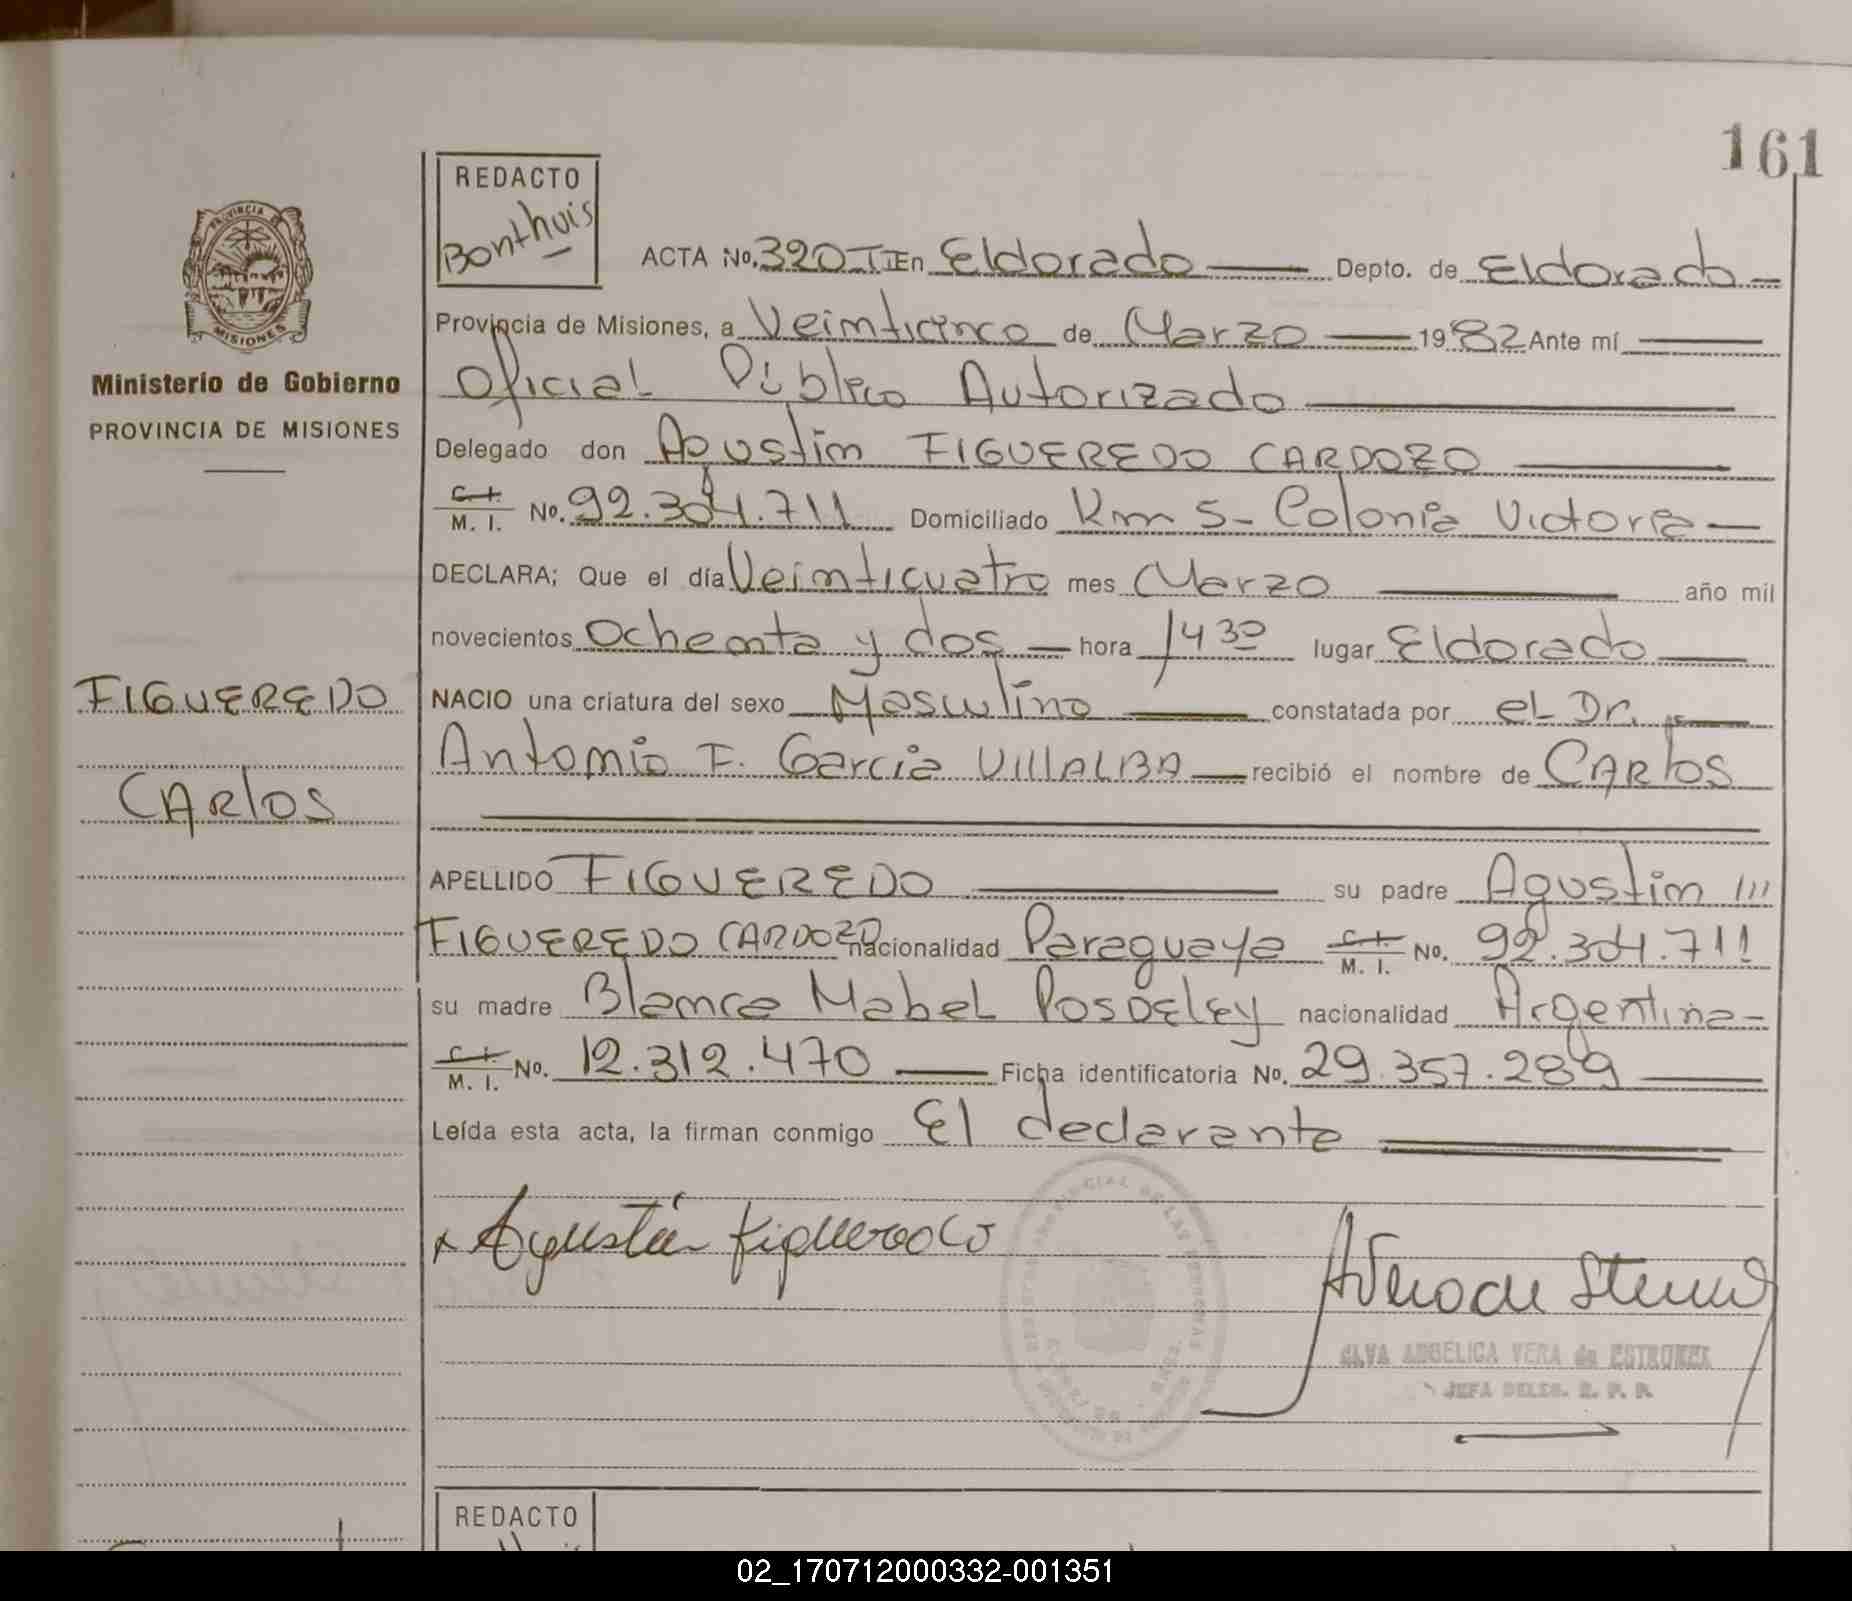 161
REDACTO
Bonthuis
PROVINCIA DE
MISIONES
Ministerio de Gobierno
PROVINCIA DE MISIONES
ACTA No. 320 TI En Eldorado Depto. de Eldorado
Provincia de Misiones, a Veinticinco de Marzo 1982 Ante mí
Oficial Público Autorizado
Delegado don Agustin FIGUEREDO CARDOZO
C. I. M. I. No. 92.304.711 Domiciliado Km 5- Colonia Victoria
DECLARA; Que el día Veinticuatro mes Marzo año mil
novecientos Ochenta y dos hora 14 30 lugar Eldorado
FIGUEREDO
CARlos
NACIO una criatura del sexo Masculino constatada por el Dr.
Antonio F. Garcia VIllALBA recibió el nombre de CARlos
APELLIDO FIGUEREDO su padre Agustin
FIGUEREDO CARDOZO nacionalidad Paraguaya C. I. M. I. No. 92.304.711
su madre Blanca Mabel POSDELEY nacionalidad Argentina
C. I. M. I. No. 12.312.470 Ficha identificatoria No. 29.357.289
Leída esta acta, la firman conmigo El declarante
x Agustín Figueredo
ELVA ANGELICA VERA de
JEFA DELEG. R. P. P.
REDACTO
02_170712000332-001351